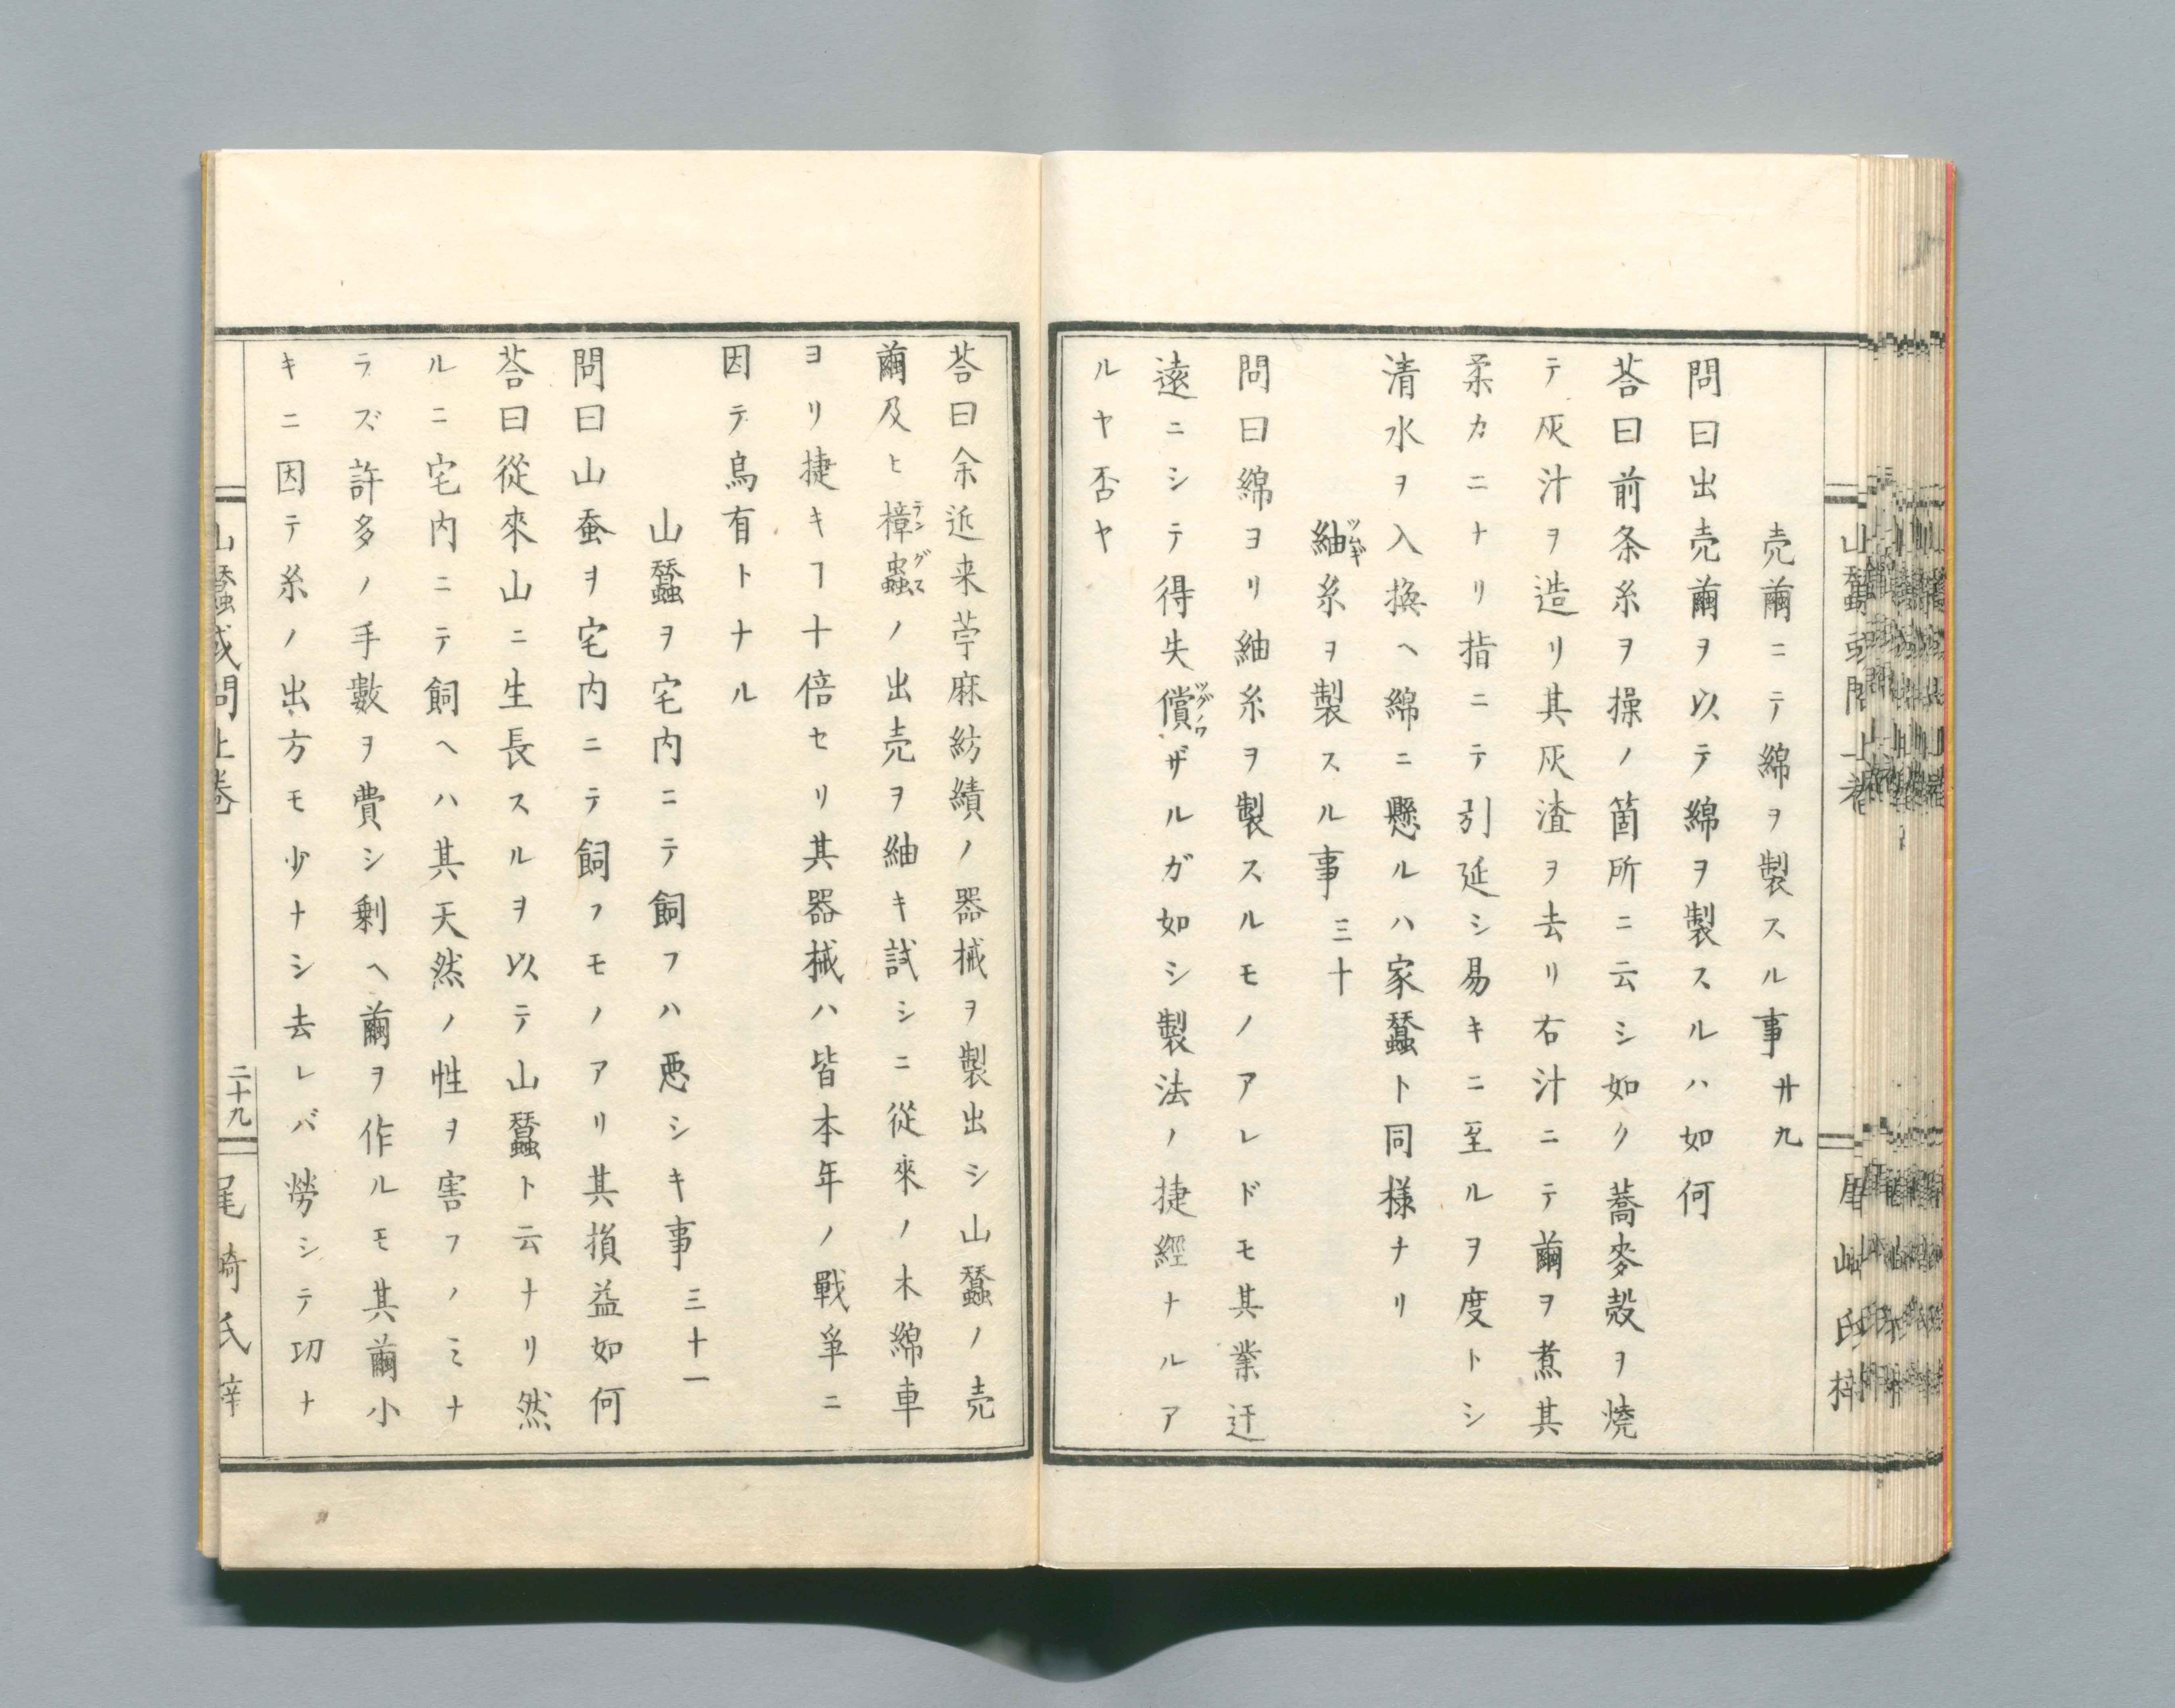 売繭ニテ綿ヲ製スル事 廾九
問曰出売繭ヲ以テ綿ヲ製スルハ如何
荅曰前条糸ヲ操ノ箇所ニ云シ如ク蕎麥殻ヲ燒
テ灰汁ヲ造リ其灰渣ヲ去リ右汁ニテ繭ヲ煮其
柔カニナリ指ニテ引延シ易キニ至ルヲ度トシ
清水ヲ入換ヘ綿ニ懸ルハ家蠶ト同様ナリ
紬糸ヲ製スル事 三十
ツムギ
問曰綿ヨリ紬糸ヲ製スルモノアレドモ其業迂
遠ニシテ得失償ザルガ如シ製法ノ捷經ナルア
ツグノワ
ルヤ否ヤ
荅曰余近来苧麻紡績ノ器械ヲ製出シ山蠶ノ売
繭及ヒ樟蟲ノ出売ヲ紬キ試シニ從來ノ木綿車
テングス
ヨリ捷キヿ十倍セリ其器械ハ皆本年ノ戰爭ニ
因テ烏有トナル
山蠶ヲ宅内ニテ飼フハ悪シキ事 三十一
問曰山蚕ヲ宅内ニテ飼フモノアリ其損益如何
荅曰從來山ニ生長スルヲ以テ山蠶ト云ナリ然
ルニ宅内ニテ飼ヘハ其天然ノ性ヲ害フノミナ
ラズ許多ノ手數ヲ費シ剰ヘ繭ヲ作ルモ其繭小
キニ因テ糸ノ出方モ少ナシ去レバ勞シテ功ナ
山蠶或問上巻
二十九
尾崎氏梓